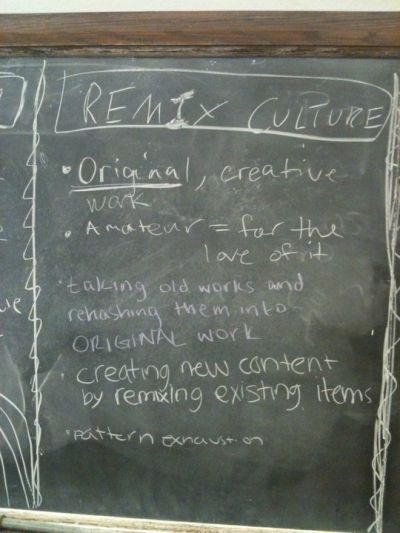 REMIX CULTURE
• Original, creative
work
• Amateur = for the
love of it
• taking old works and
rehashing them into
ORIGINAL work
• creating new content
by remixing existing items
• pattern exhaustion